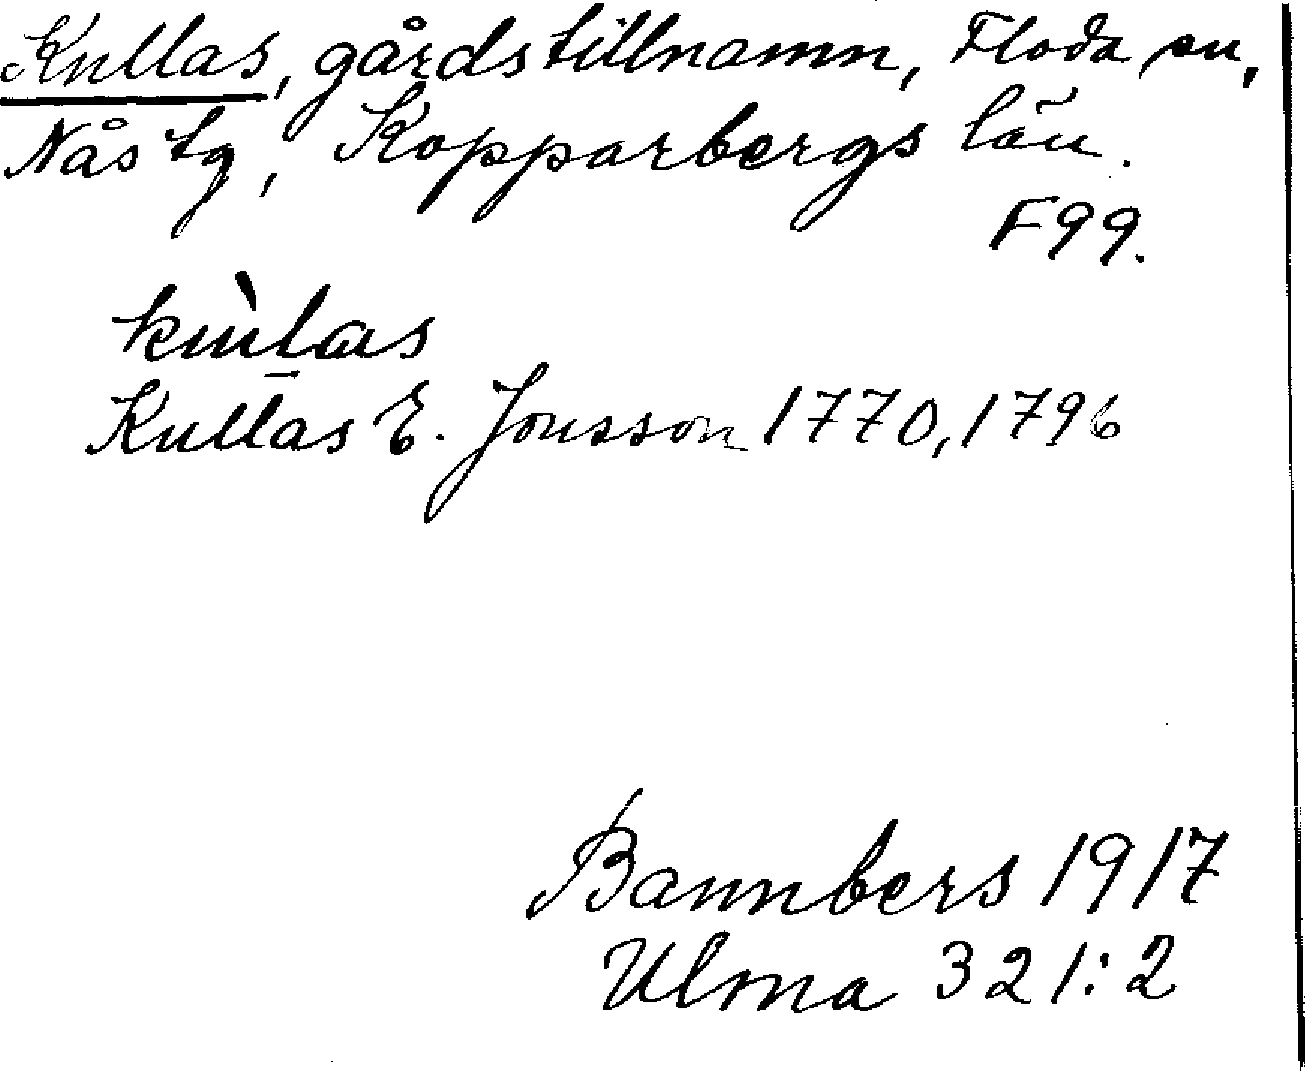 Kullas, gårdstillnamn, Floda sn,
Nås tg, Kopparbergs län.
F99.
Kullas E. Jonsson 1770, 1796
Bannbers 1917
Ulma 321:2